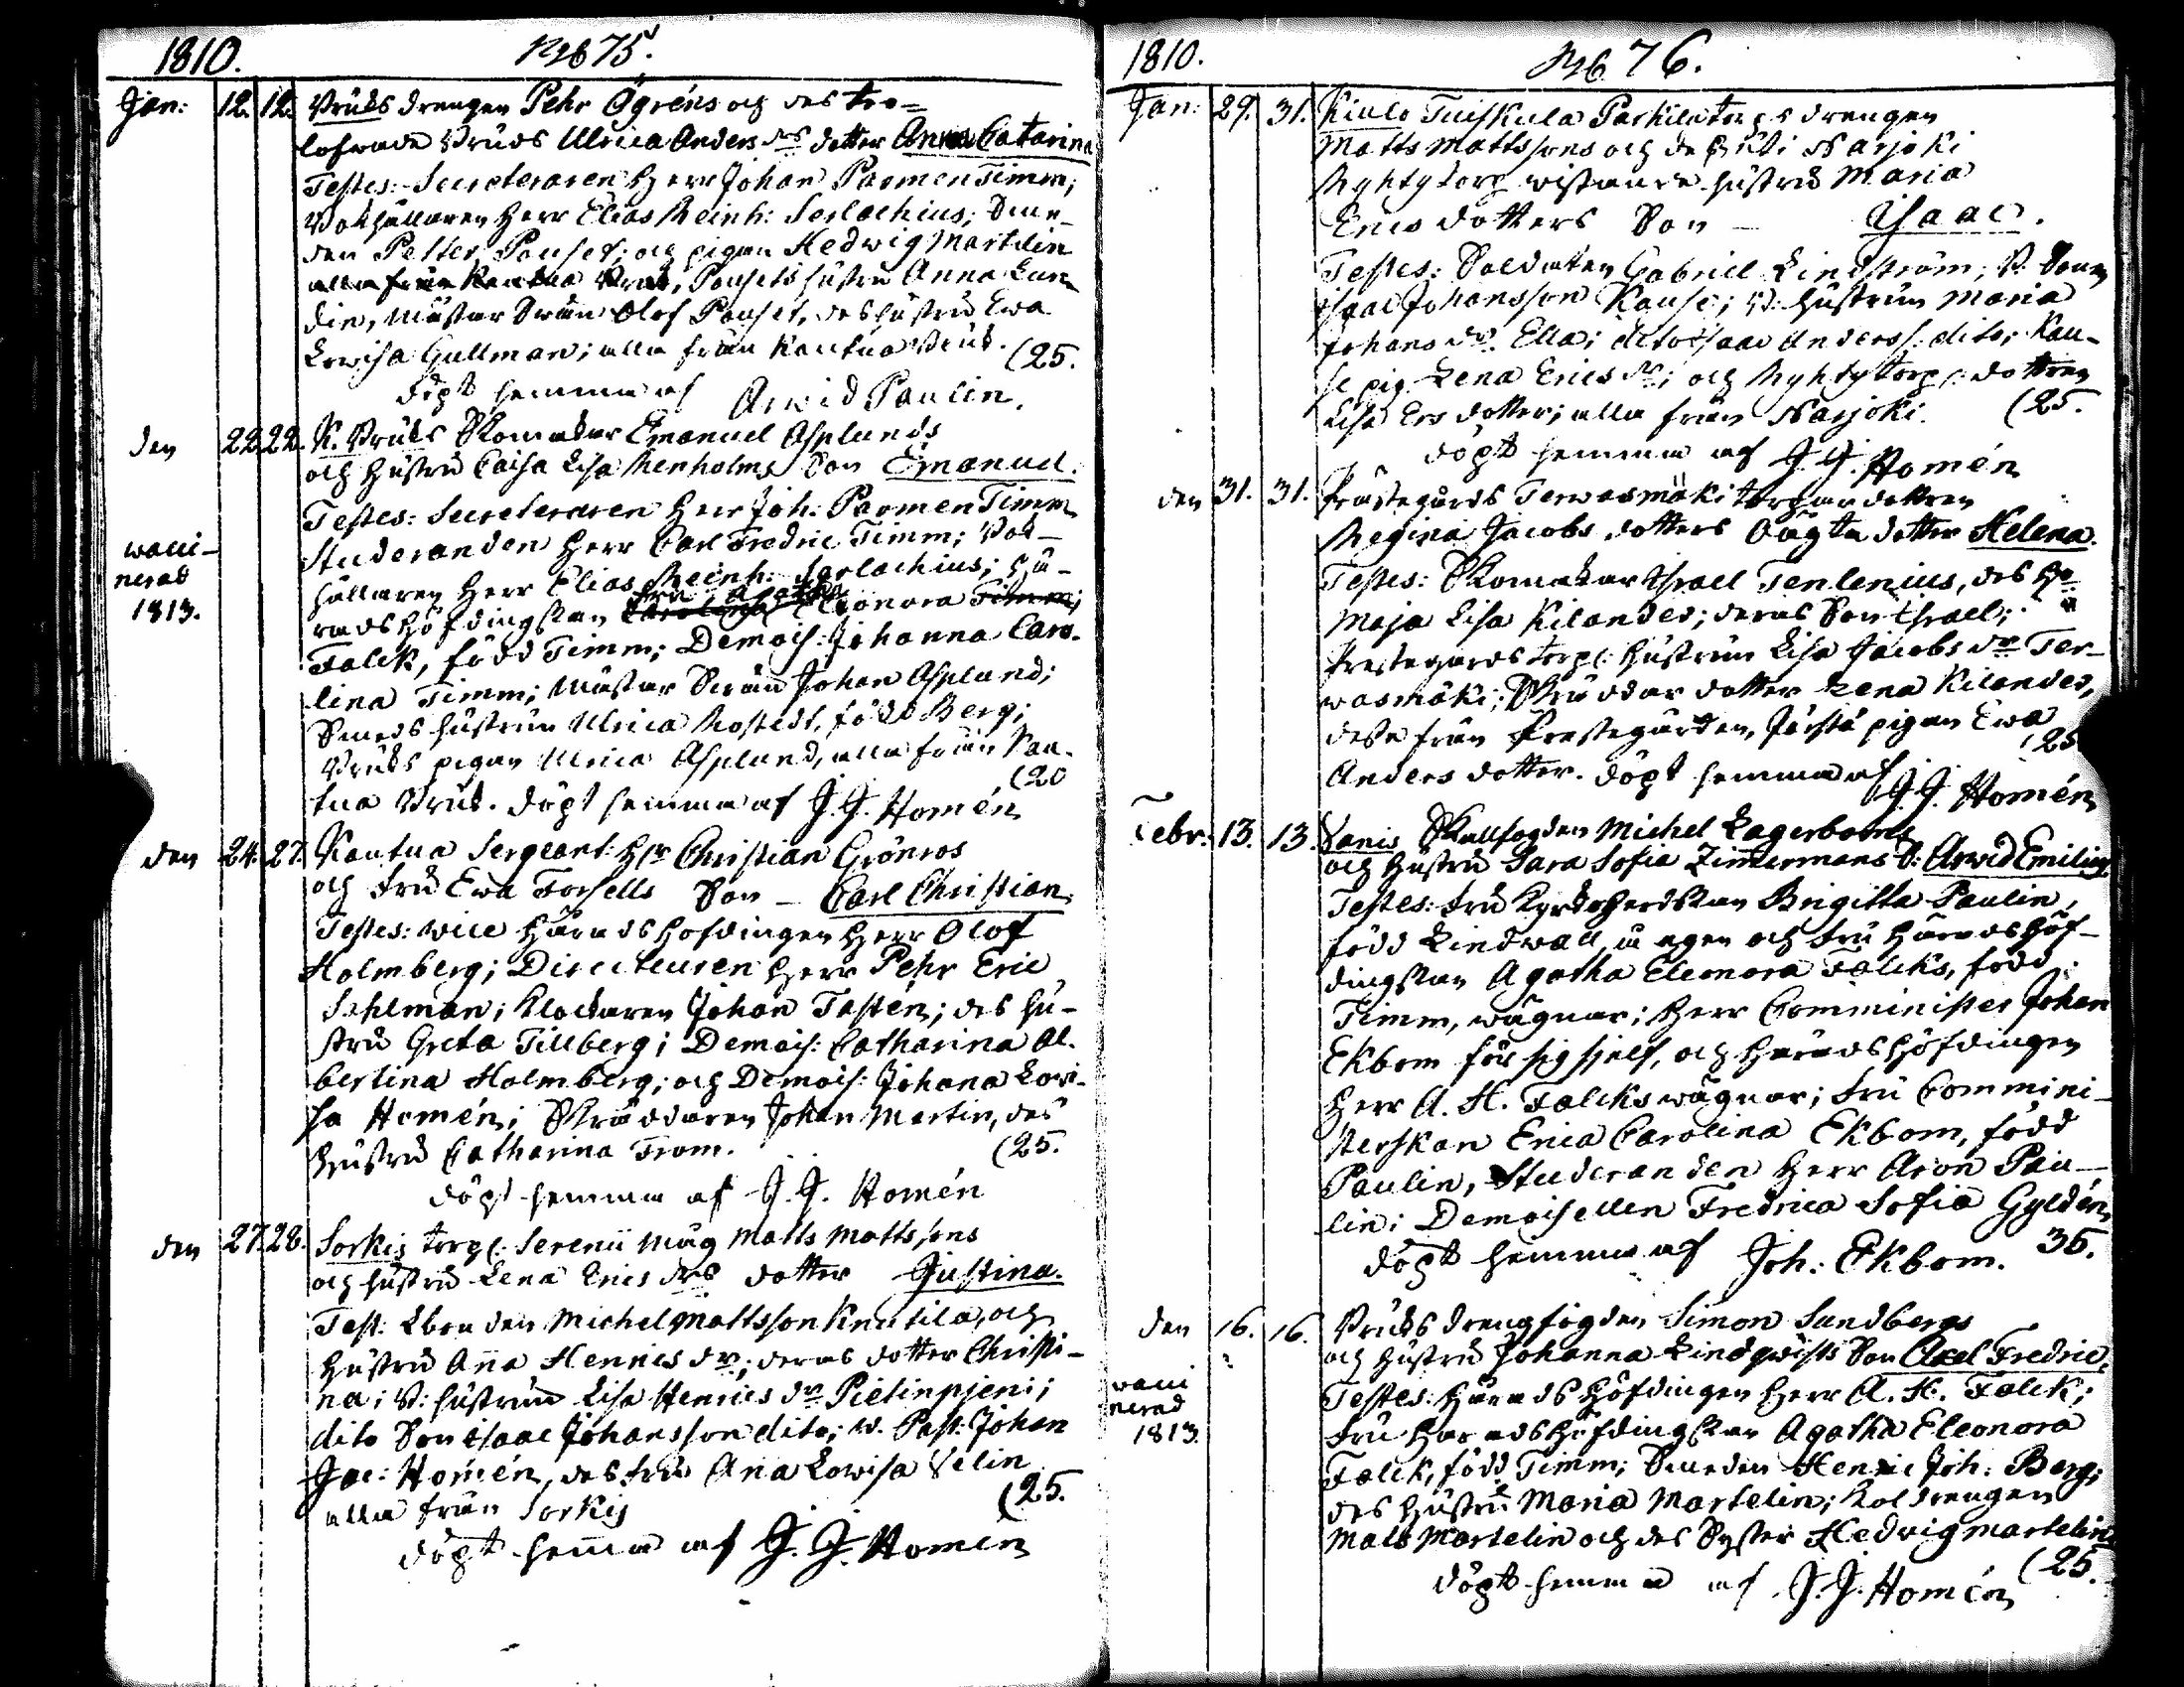 1810. 75.
Jan: 12. 12. Bruks drengen Pehr Ögréns och des tro=
lofwade Bruds Ulrica Anders drs dotter Anna Catarina
Testes: Secreteraren Herr Johan Parmen Timm;
Bokhållaren Herr Elias Reinh: Serlachius; Sme-
den Petter Pouset; och pigan Hedwig Martelin
alla från Kautua Bruk, Pousets hustru Anna Lun
din, Mästar Swän Olof Pouset, des hustru Ewa
Lovisa Gullman; alla från Kautua Bruk. (25.
döpt hemma af Arwid Paulin.
den 22. 22. K. Bruks Skomakar Emanuel Asplunds
och hustru Caisa Lisa Renholms Son Emanuel.
Testes: Secreteraren Herr Joh: Parmen Timm
Studeranden Herr Carl Fredric Timm; Bok-
hållaren Herr Elias Reinh: Serlachius; Hä-
radshöfdingskan Fru Agatha Eleonora Timm;
Falck, född Timm; Demois: Johanna Caro-
lina Timm; Mästar Swän Johan Asplund;
Smeds hustrun Ulrica Rostedt, född Berg;
Bruks pigan Ulrica Asplund, alla från Kau-
tua Bruk. döpt hemma af J. J. Homén (20
wacci-
nerad
1813.
den 24. 27. Kautua Sergeant: Hr Christian Grönros
och fru Ewa Forsells Son - Carl Christian.
Testes: Wice Häradshöfdingen Herr Olof
Holmberg; Directeuren Herr Pehr Eric
Sahlman; Klockaren Johan Tasten; des hu-
stru Greta Tillberg; Demois: Catharina Al-
bertina Holmberg; och Demois: Johana Lovi-
sa Homén; Skräddaren Johan Martin, des
hustru Catharina From. (25.
döpt hemma af J. J. Homén
den 27. 28. Sorkis torp: Serenii Måg Matts Mattssons
och hustru Lena Erics drs dotter Justina.
Test: Åbonden Michel Mattsson Knutila, och
hustru Anna Henrics dr; deras dotter Christi-
na; B: hustrun Lisa Henrics dr Pietinpjeni;
dito Son Isaac Johansson dito; W. Past: Johan
Jac: Homén, des fru Ana Lowisa Velin
alla från Sorkis (25.
döpt hemma af J. J. Homén
1810. 76.
Jan: 29. 31. Kiulo Tuiskula Parkila torps drengen
Matts Mattssons och des uti Narjoki
Ryhty torp wistande hustru Maria
Erics dotters Son - Isaac.
Testes: Soldaten Gabriel Lindström; B. Son
Isaac Johansson Kause; B: hustrun Maria
Johans dr. Ella; dito Isaac Anderss: dito; Kau-
se pig. Lena Erics dr; och Ryhty torp: dottren
Lisa Ers dotter; alla från Narjoki. (25.
döpt hemma af J. J. Homén
den 31. 31. Prästegårds Terwasmäki torpar dottren
Regina Jacobs dotters Oägta dotter Helena.
Testes: Skomakar Israel Tenlenius, des h:
Maja Lisa Kilander; deras Son Israel;
Prestegårds torp: hustrun Lisa Jacobs dr Ter-
wasmäki; Skräddar dotter Lena Kilander,
desse från Prestegården, pigan Ewa
Anders dotter. döpt hemma af J. J. Homén (25
Febr: 13. 13. Vanis Skallfogden Michel Lagerboms
och hustru Sara Sofia Zimmermans S: Arwid Emilius.
Testes: Fru Kyrkoherdskan Brigitta Paulin,
född Lindwall, å egen och fru Häradshöf-
dingskan Agatha Eleonora Falcks, född
Timm, wägnar; Herr Comminister Johan
Ekbom för sig sjelf, och Häradshöfdingen
Herr A. H. Falcks wägnar; Fru Commini-
sterskan Erica Carolina Ekbom, född
Paulin, Studeranden Herr Aron Pau-
lin; Demoisellen Fredrica Sofia Gyldén,
döpt hemma af Joh: Ekbom. 35.
den 16. 16. Bruks drengfogden Simon Sundbergs
och hustru Johanna Lindqwists Son Axel Fredric.
Testes: Häradshöfdingen Herr A. H. Falck;
Fru Häradshöfdingskan Agatha Eleonora
Falck, född Timm; Smeden Henric Joh: Berg;
des hustru Maria Martelin; Koldrengen
Mats Martelin och des Syster Hedvig Martelin
döpt hemma af J. J. Homén (25.
wacci
nerad
1813.